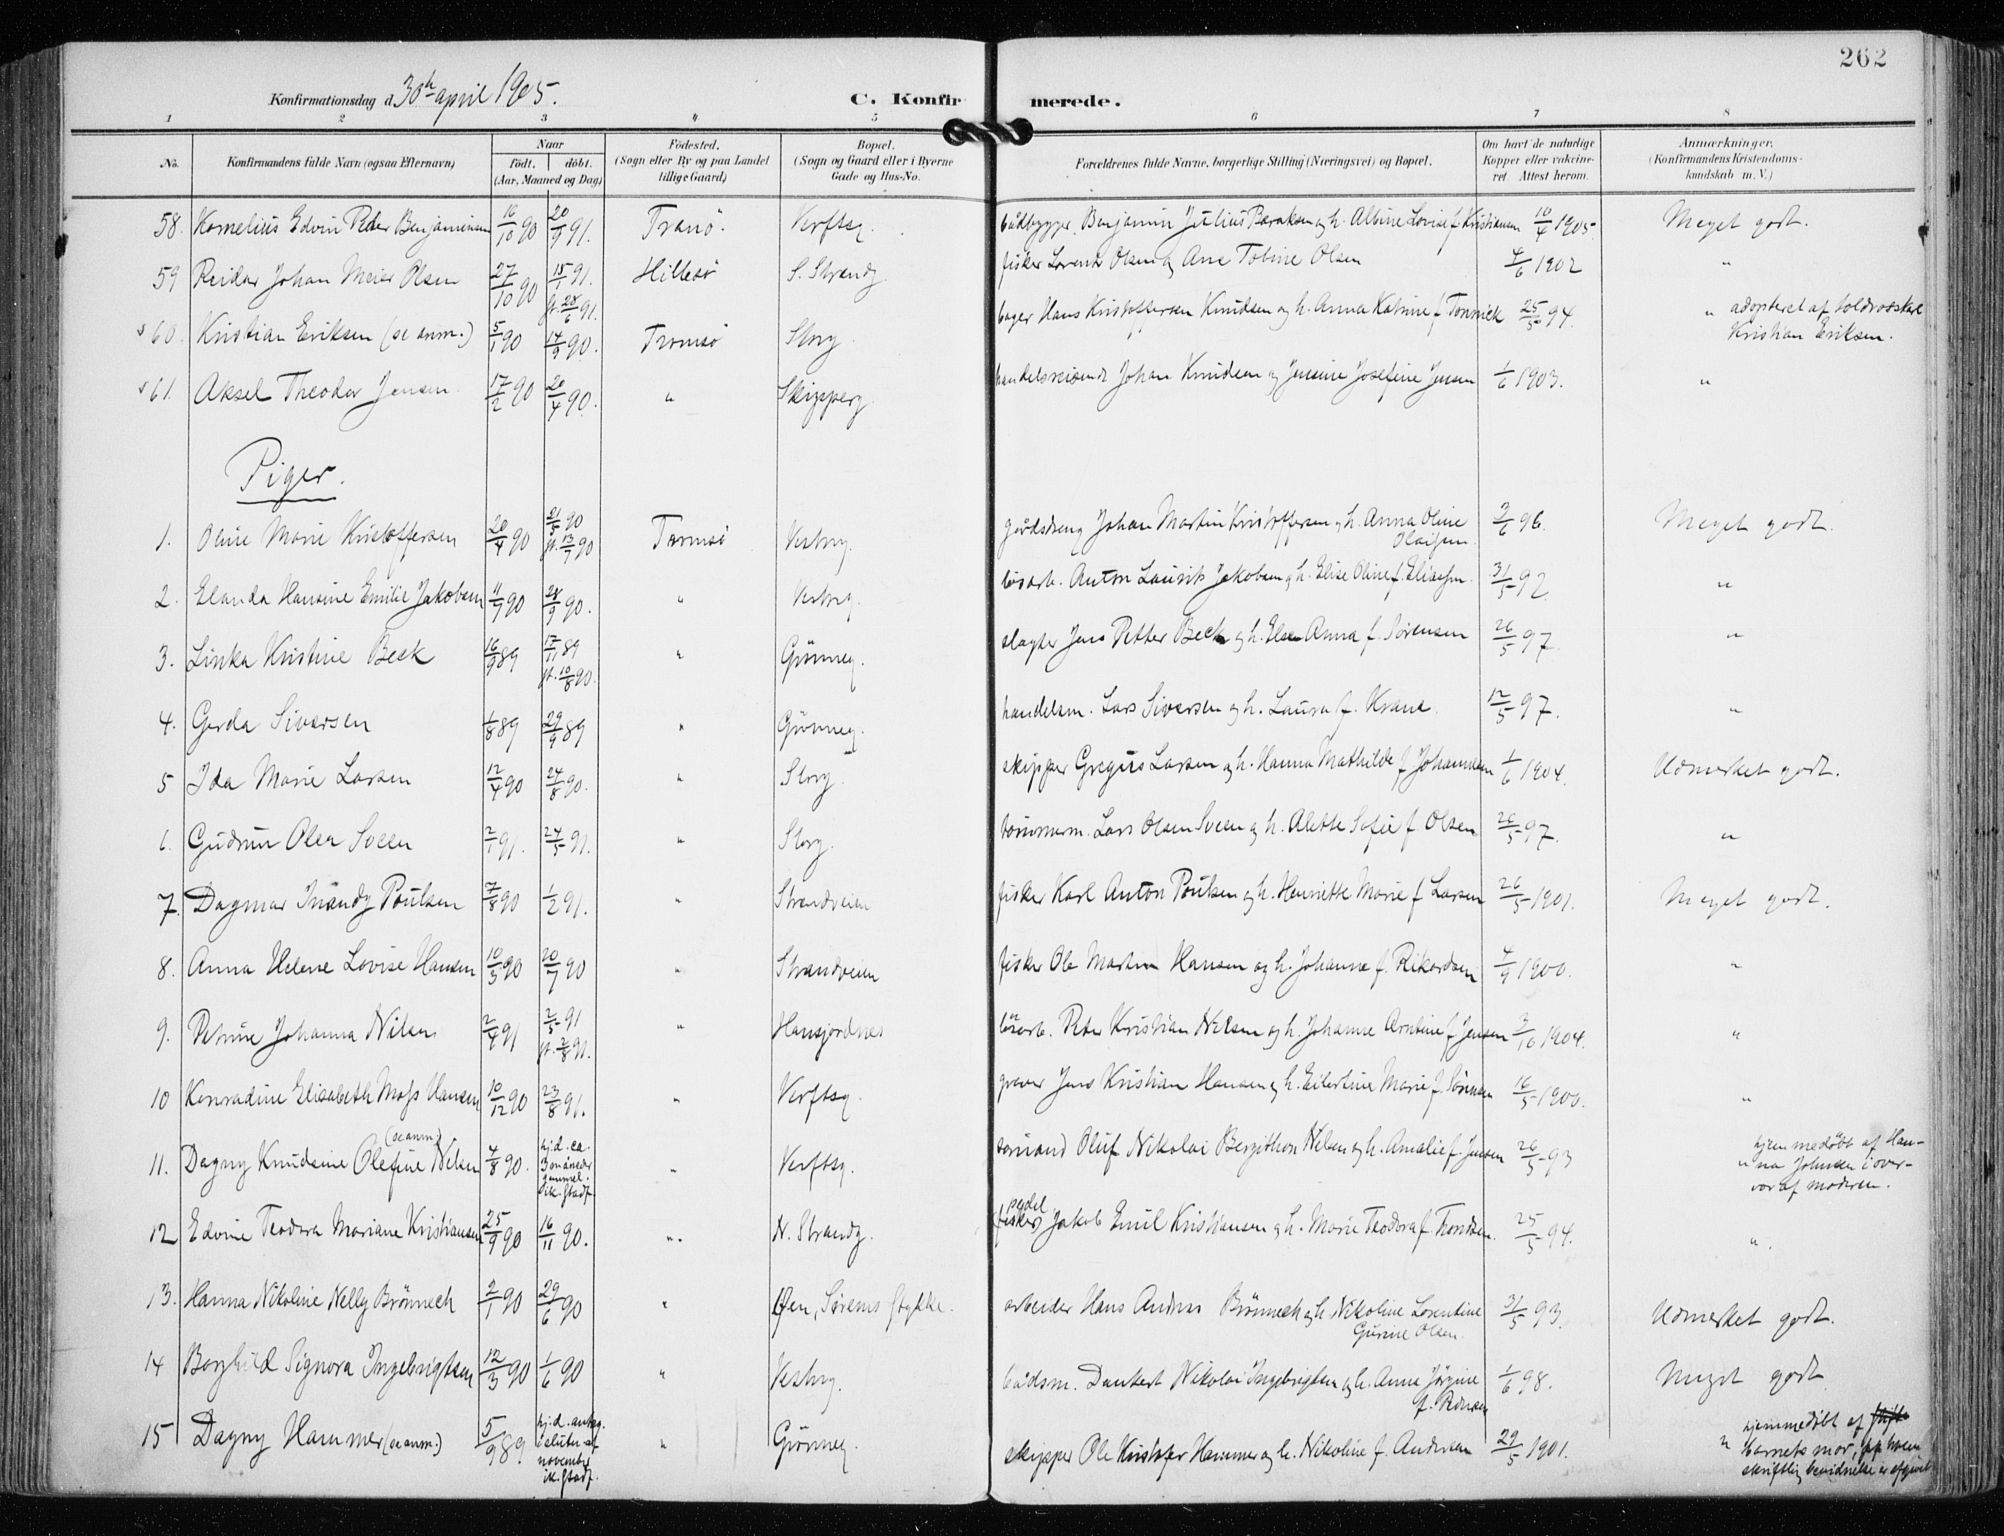 262
Konfirmationsdag d. 30te april 1905.
C. Konfirmerede.
1 2 3 4 5 6 7 8
No. Konfirmandens fulde Navn (ogsaa Efternavn) Naar født. døbt. (Aar, Maaned og Dag) Fødested. (Sogn eller By og paa Landet tillige Gaard) Bopæl. (Sogn og Gaard eller i Byerne Gade og Hus-No. Forældrenes fulde Navne, borgerlige Stilling (Næringsvei) og Bopæl. Om havt de naturlige Kopper eller vakcineret. Attest herom. Anmærkninger. (Konfirmandens Kristendomskundskab m. V.)
58. Kornelius Edvin Peder Benjaminsen 16/10 90 20/9 91. Tranø. Verftsg. båtbygger Benjamin Julius Baraksen og h. Albine Lovise f. Kristiansen 10/4 1905. Meget godt.
59 Reidar Johan Meier Olsen 27/10 90 15/1 91. fr. 28/6 91. Hillesø S. Strandg. fisker Lorents Olsen og Ane Tobine Olsen 4/6 1902 "
60. Kristian Eriksen (se anm.) 5/1 90 14/9 90. Tromsø Storg. bager Hans Kristoffersen Knudsen og h. Anna Katrine f. Tonnick 25/5 94. " adopteret af toldroerskarl Kristian Eriksen.
61. Aksel Theodor Jensen 17/2 90 20/4 90. " Skipperg. handelsreisende Johan Knudsen og Jensine Josefine Jensen 1/6 1903. "
Piger.
1. Oline Marie Kristoffersen 20/4 90 21/5 90 fr. 13/7 90 Tromsø Vestreg. gårdsdreng Johan Martin Kristoffersen og h. Anna Oline Olaisen 2/6 96. Meget godt.
2. Elanda Hansine Emilie Jakobsen 11/9 90 28/9 90. " Vestreg. løsarb. Anton Laurits Jakobsen og h. Elise Oline f. Eliassen. 31/5 92. "
3. Linka Kristine Beck 16/9 89 17/11 89 fr. 10/8 90. " Grønneg. slagter Jens Petter Beck og h. Else Anna f. Sørensen 26/5 97. "
4. Gerda Siversen 1/8 89 29/9 89 " Grønneg. handelsm. Lars Siversen og h. Laura f. Krane. 12/5 97. "
5 Ida Marie Larsen 12/4 90 24/8 90. " Storg. skipper Gregus Larsen og h. Hanna Mathilde f. Johannesen 1/6 1904. Udmerket godt.
6. Gudrun Olea Sveen 2/1 91. 24/5 91. " Storg. tømmerm. Lars Olsen Sveen og h. Alette Sofie f. Olsen 26/5 97. "
7. Dagmar Inandy Poulsen 7/8 90 1/2 91. " Strandveien fisker Karl Anton Poulsen og h. Henriette Marie f. Larsen 26/5 1901. Meget godt.
8. Anna Helene Lovise Hansen 10/5 90 20/7 90 " Strandveien fisker Ole Martin Hansen og h. Johanne f. Rikardsen 4/9 1900. "
9. Petrine Johanna Nilsen 2/4 91 2/5 91 fr. 2/8 91. " Hansjordnes løsarb. Peter Kristian Nilsen og h. Johanne Arntine f. Jensen 3/10 1904. "
10 Konradine Elisabeth Moss Hansen 10/12 90 23/8 91. " Verftsg. graver Jens Kristian Hansen og h. Eilertine Marie f. Sørensen 16/5 1900. "
11. Dagny Knudsine Olefine Nilsen (se anm.) 4/8 90. hj.d. ca. 3 måneder gammel. ik. stadf. " Verftsg. sømand Oluf Nikolai Bergithon Nilsen og h. Amalie f. Jensen 26/5 93 " hjemmedøbt af Hanna Johnsen i overvær af moderen.
12 Edvine Teodora Mariane Kristiansen 25/9 90 16/11 90. " N. Strandg. pedel (fisker) Jakob Emil Kristiansen og h. Marie Teodora f. Trondsen. 25/5 94. "
13. Hanna Nikoline Nelly Brönnech 2/1 90 29/6 90 " Øen, Sørens stykke. arbeider Hans Andreas Brönnech og h. Nikoline Lorentine Gurine Olsen. 31/5 93. Udmerket godt.
14 Borghild Signora Ingebrigtsen 12/3 90 1/6 90 " Vestreg. bådsm. Dankert Nikolai Ingebrigtsen og h. Anne Jørgine f. 1/6 98. Meget godt
15 Dagny Hammer (se anm.) 5/9 89 hj.d. i slutn. af november ik. stadf. " Grønneg. skipper Ole Kristofer Hammer og h. Nikoline f. Andersen 29/5 1901. " hjemmedøbt af barnets mor, skriftlig bevidnelse er afgivet